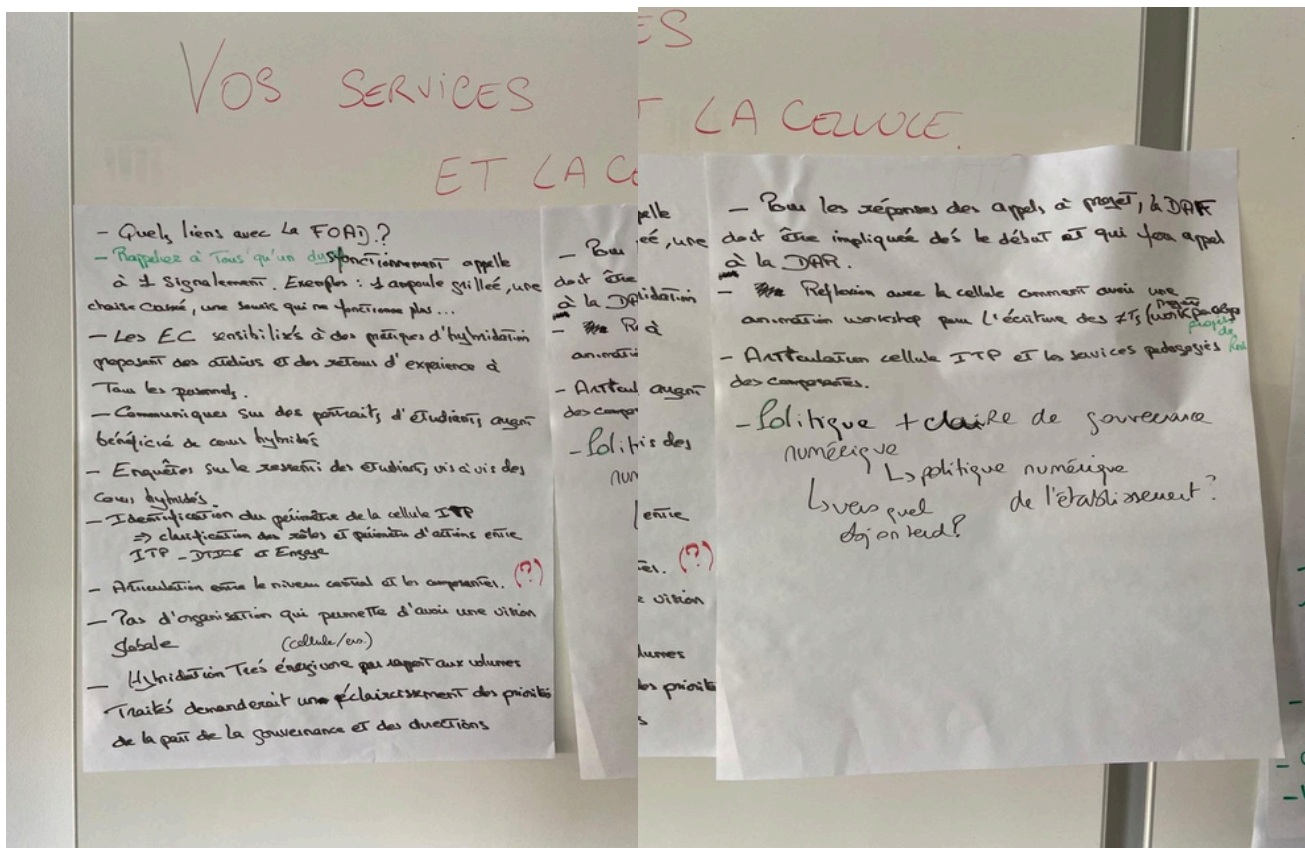 VOS SERVICES
ET LA CELLULE
- Quels liens avec la FOAD ?
- Rappeler à Tous qu'un dysfonctionnement appelle
à 1 signalement. Exemples : 1 ampoule grillée, une
chaise cassé, une souris qui ne fonctionne plus...
- Les EC sensibilisés à des pratiques d'hybridation
proposant des ateliers et des retours d'expérience à
Tous les personnels.
- Communiquer sur des portraits d'étudiants ayant
bénéficié de cours hybrides
- Enquêtes sur le ressenti des étudiants vis à vis des
cours hybrides.
- Identification du périmètre de la cellule ITP
⇒ clarification des rôles et périmètre d'actions entre
ITP - DTICE et Engage
- Articulation entre le niveau central et les composantes. (?)
- Pas d'organisation qui permette d'avoir une vision
globale (cellule/ens.)
- Hybridation Très énergivore par rapport aux volumes
Traités demanderait un éclaircissement des priorités
de la part de la gouvernance et des directions
- Pour les réponses des appels à projet, la DAF
doit être impliquée dès le début et qui fera appel
à la DAR.
- Réflexion avec la cellule comment avoir une
animation workshop pour l'écriture des
projets
de
- Articulation cellule ITP et les services pédagogiés
des composantes.
- Politique + claire de gouvernance
numérique
↳ politique numérique
de l'établissement ?
↳ vers quel
obj on tend ?